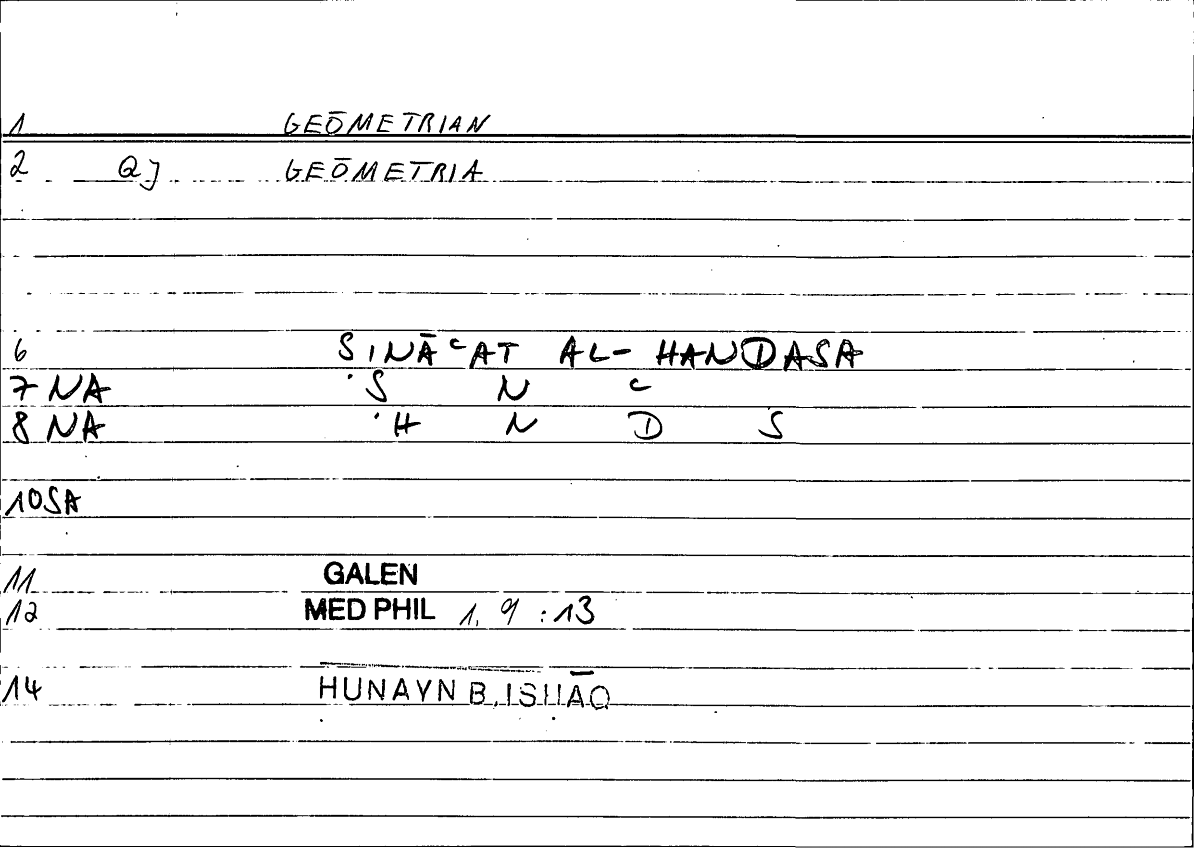 1 GEŌMETRIAN
2 QJ GEŌMETRIA
6 SINĀCAT AL-HANDASA
7 NA S N C
8 NA H N D S
10 SA
11 GALEN
12 MED PHIL 1, 9 : 13
14 HUNAYN B. ISHĀQ